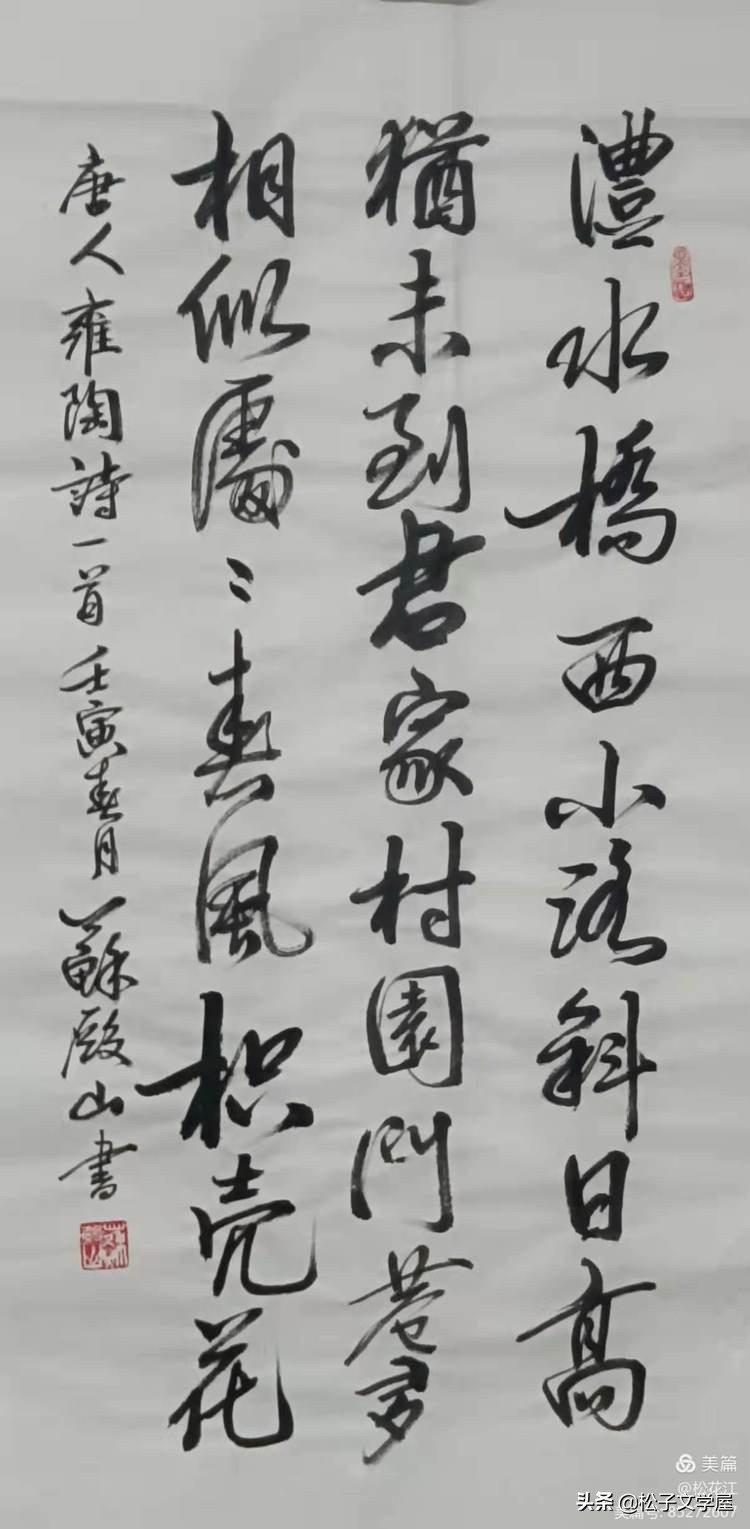 澧水橋西小路斜日高
猶未到君家村園門巷多
相似處〻春風枳壳花
唐人雍陶詩一首 壬寅春月 蘇殿山書
美篇
@松花江
美篇号: 85272607
头条 @松子文学屋